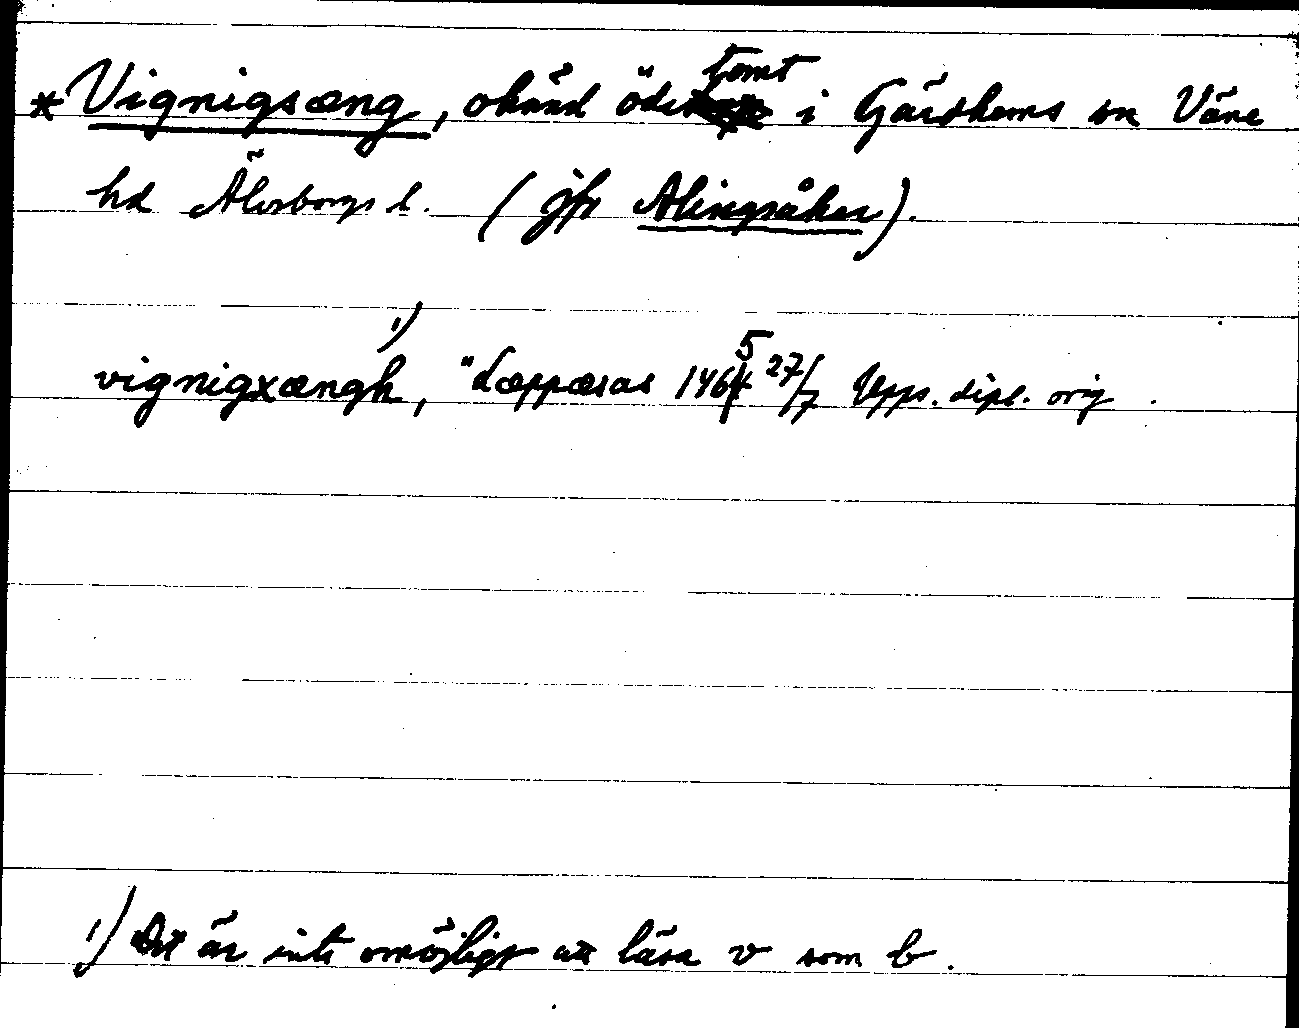 * Vignigsæng, okänd ödetomt i Gärdhems sn Väne
hd Älvsborgs l. (jfr Alingsåker).
vignigxængh¹⁾, "Læppæsas 1465 27/7 Upps. dipl. orig.
1) Det är inte omöjligt att läsa v som b.